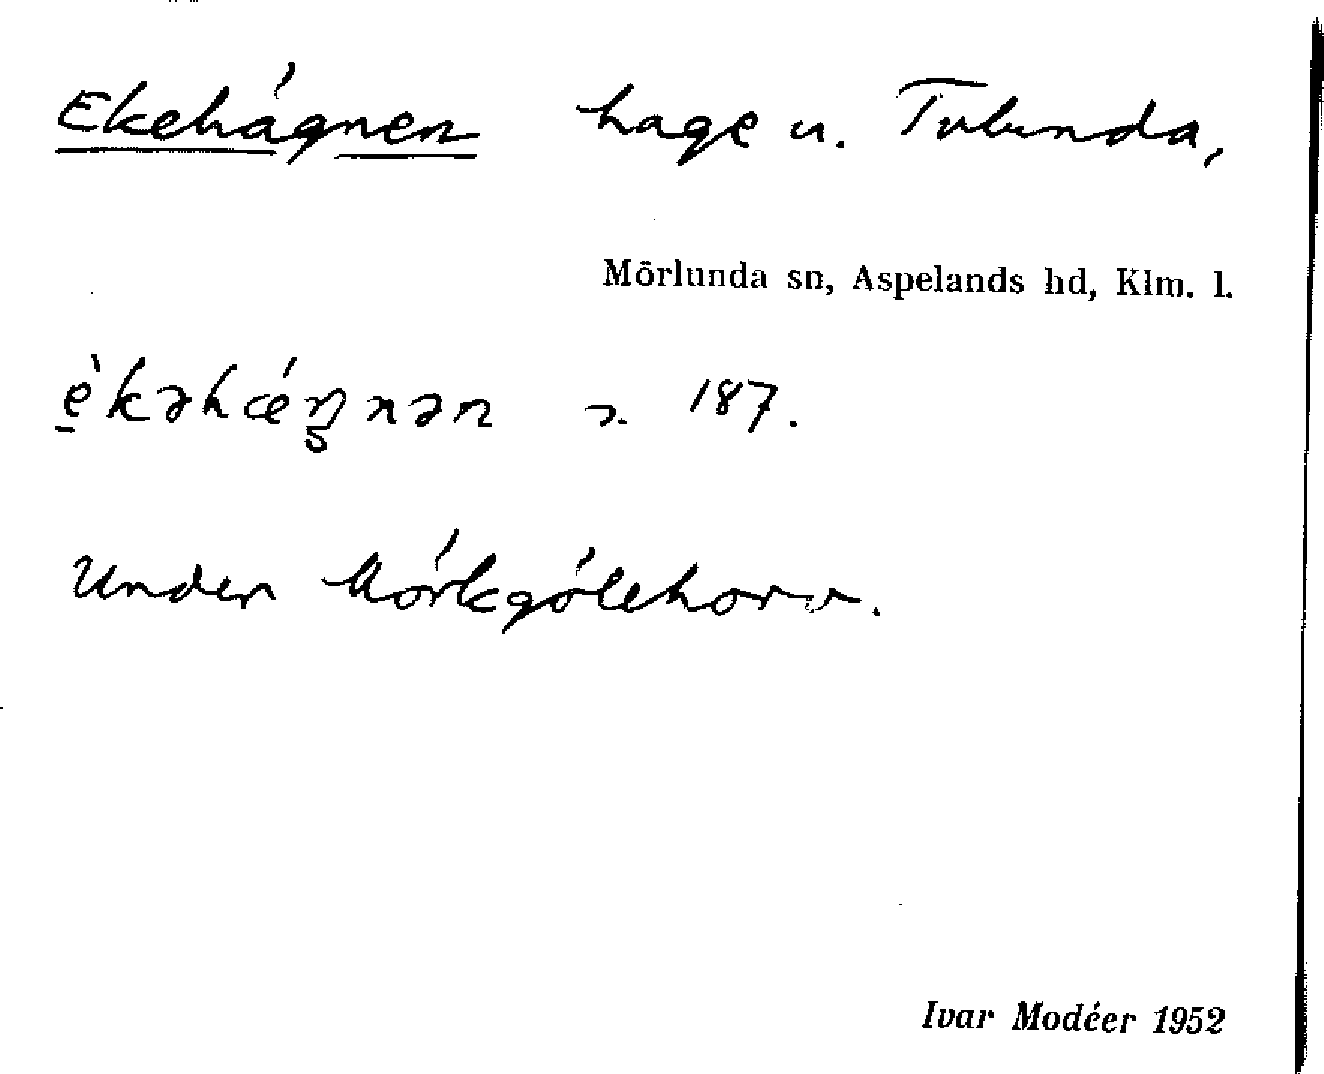 Ekehágnen hage u. Tulunda,
Mörlunda sn, Aspelands hd, Klm. l.
187.
Under
Ivar Modéer 1952